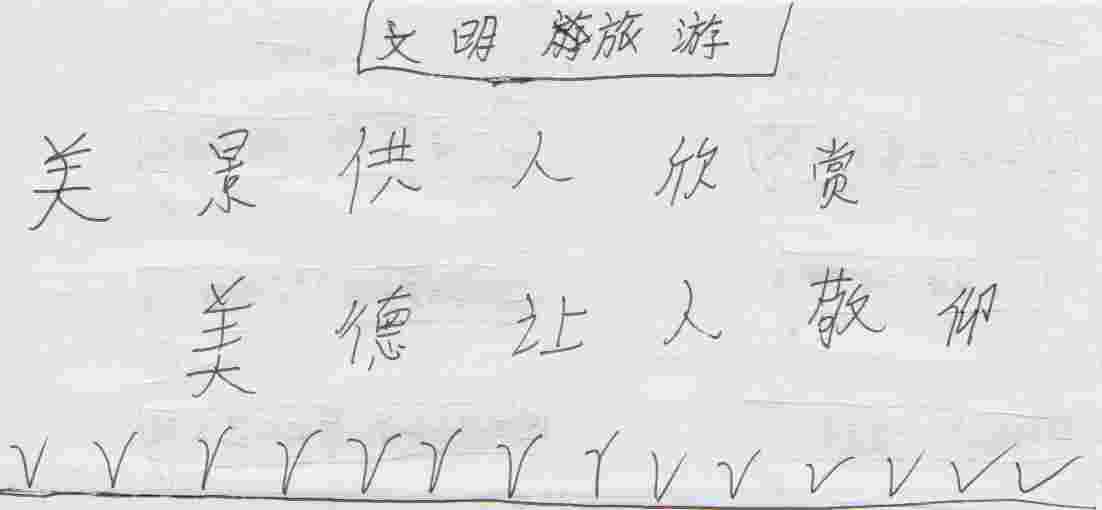 文明旅游
美景供人欣赏
美德让人敬仰